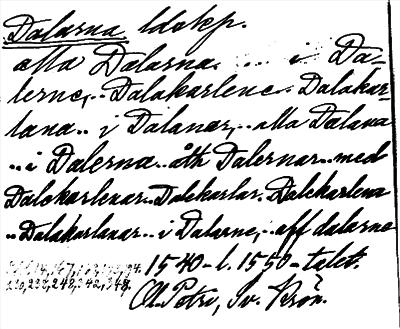 Dalarna ldskp.
alla Dalarna ... i Da-
lerne, .. Dalakarlene .. Dalakar-
lana .. i Dalanar, .. alla Dalana
.. i Dalerna .. åth Dalernar .. med
Dalakarlenar .. Dalekarlar. Dalekarlena
.. Dalakarlanar .. i Dalerne, .. aff dalerna
1540-l. 1550-talet.
220, 232, 248, 342, 348.
Ol. Petri, Sv. Krön.